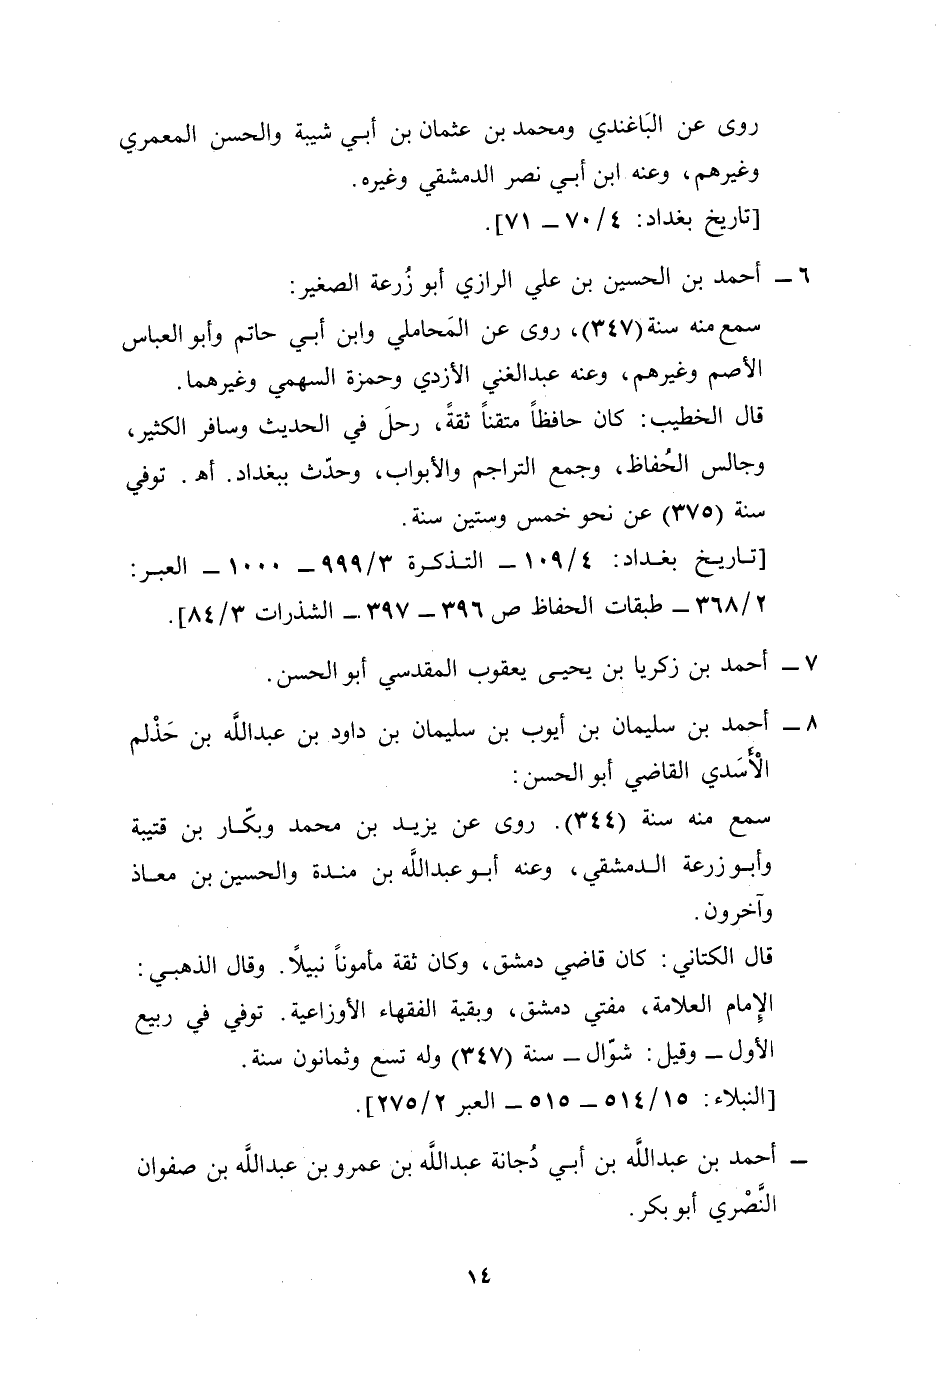 روى عن البَاغندي ومحمد بن عثمان بن أبي شيبة والحسن المعمري
وغيرهم، وعنه ابن أبي نصر الدمشقي وغيره.
[تاريخ بغداد: ٤/ ٧٠ ــ ٧١].
٦ ــ أحمد بن الحسين بن علي الرازي أبو زُرعة الصغير:
سمع منه سنة (٣٤٧)، روى عن المَحاملي وابن أبي حاتم وأبو العباس
الأصم وغيرهم، وعنه عبدالغني الأزدي وحمزة السهمي وغيرهما.
قال الخطيب: كان حافظاً متقناً ثقةً، رحلَ في الحديث وسافر الكثير،
وجالس الحُفاظ، وجمع التراجم والأبواب، وحدّث ببغداد. أهـ. توفي
سنة (٣٧٥) عن نحو خمس وستين سنة.
[تاريخ بغداد: ٤/ ١٠٩ ــ التذكرة ٣/ ٩٩٩ ــ ١٠٠٠ ــ العبر:
٢/ ٣٦٨ ــ طبقات الحفاظ ص ٣٩٦ ــ ٣٩٧ ــ الشذرات ٣/ ٨٤].
٧ ــ أحمد بن زكريا بن يحيى يعقوب المقدسي أبو الحسن.
٨ ــ أحمد بن سليمان بن أيوب بن سليمان بن داود بن عبدالله بن حَذْلم
الْأَسَدي القاضي أبو الحسن:
سمع منه سنة (٣٤٤). روى عن يزيد بن محمد وبكّار بن قتيبة
وأبو زرعة الدمشقي، وعنه أبو عبدالله بن مندة والحسين بن معاذ
وآخرون.
قال الكتاني: كان قاضي دمشق، وكان ثقة مأموناً نبيلاً. وقال الذهبي:
الإِمام العلامة، مفتي دمشق، وبقية الفقهاء الأوزاعية. توفي في ربيع
الأول ــ وقيل: شوّال ــ سنة (٣٤٧) وله تسع وثمانون سنة.
[النبلاء: ١٥/ ٥١٤ ــ ٥١٥ ــ العبر ٢/ ٢٧٥].
ــ أحمد بن عبدالله بن أبي دُجانة عبدالله بن عمرو بن عبدالله بن صفوان
النَّصْري أبو بكر.
١٤